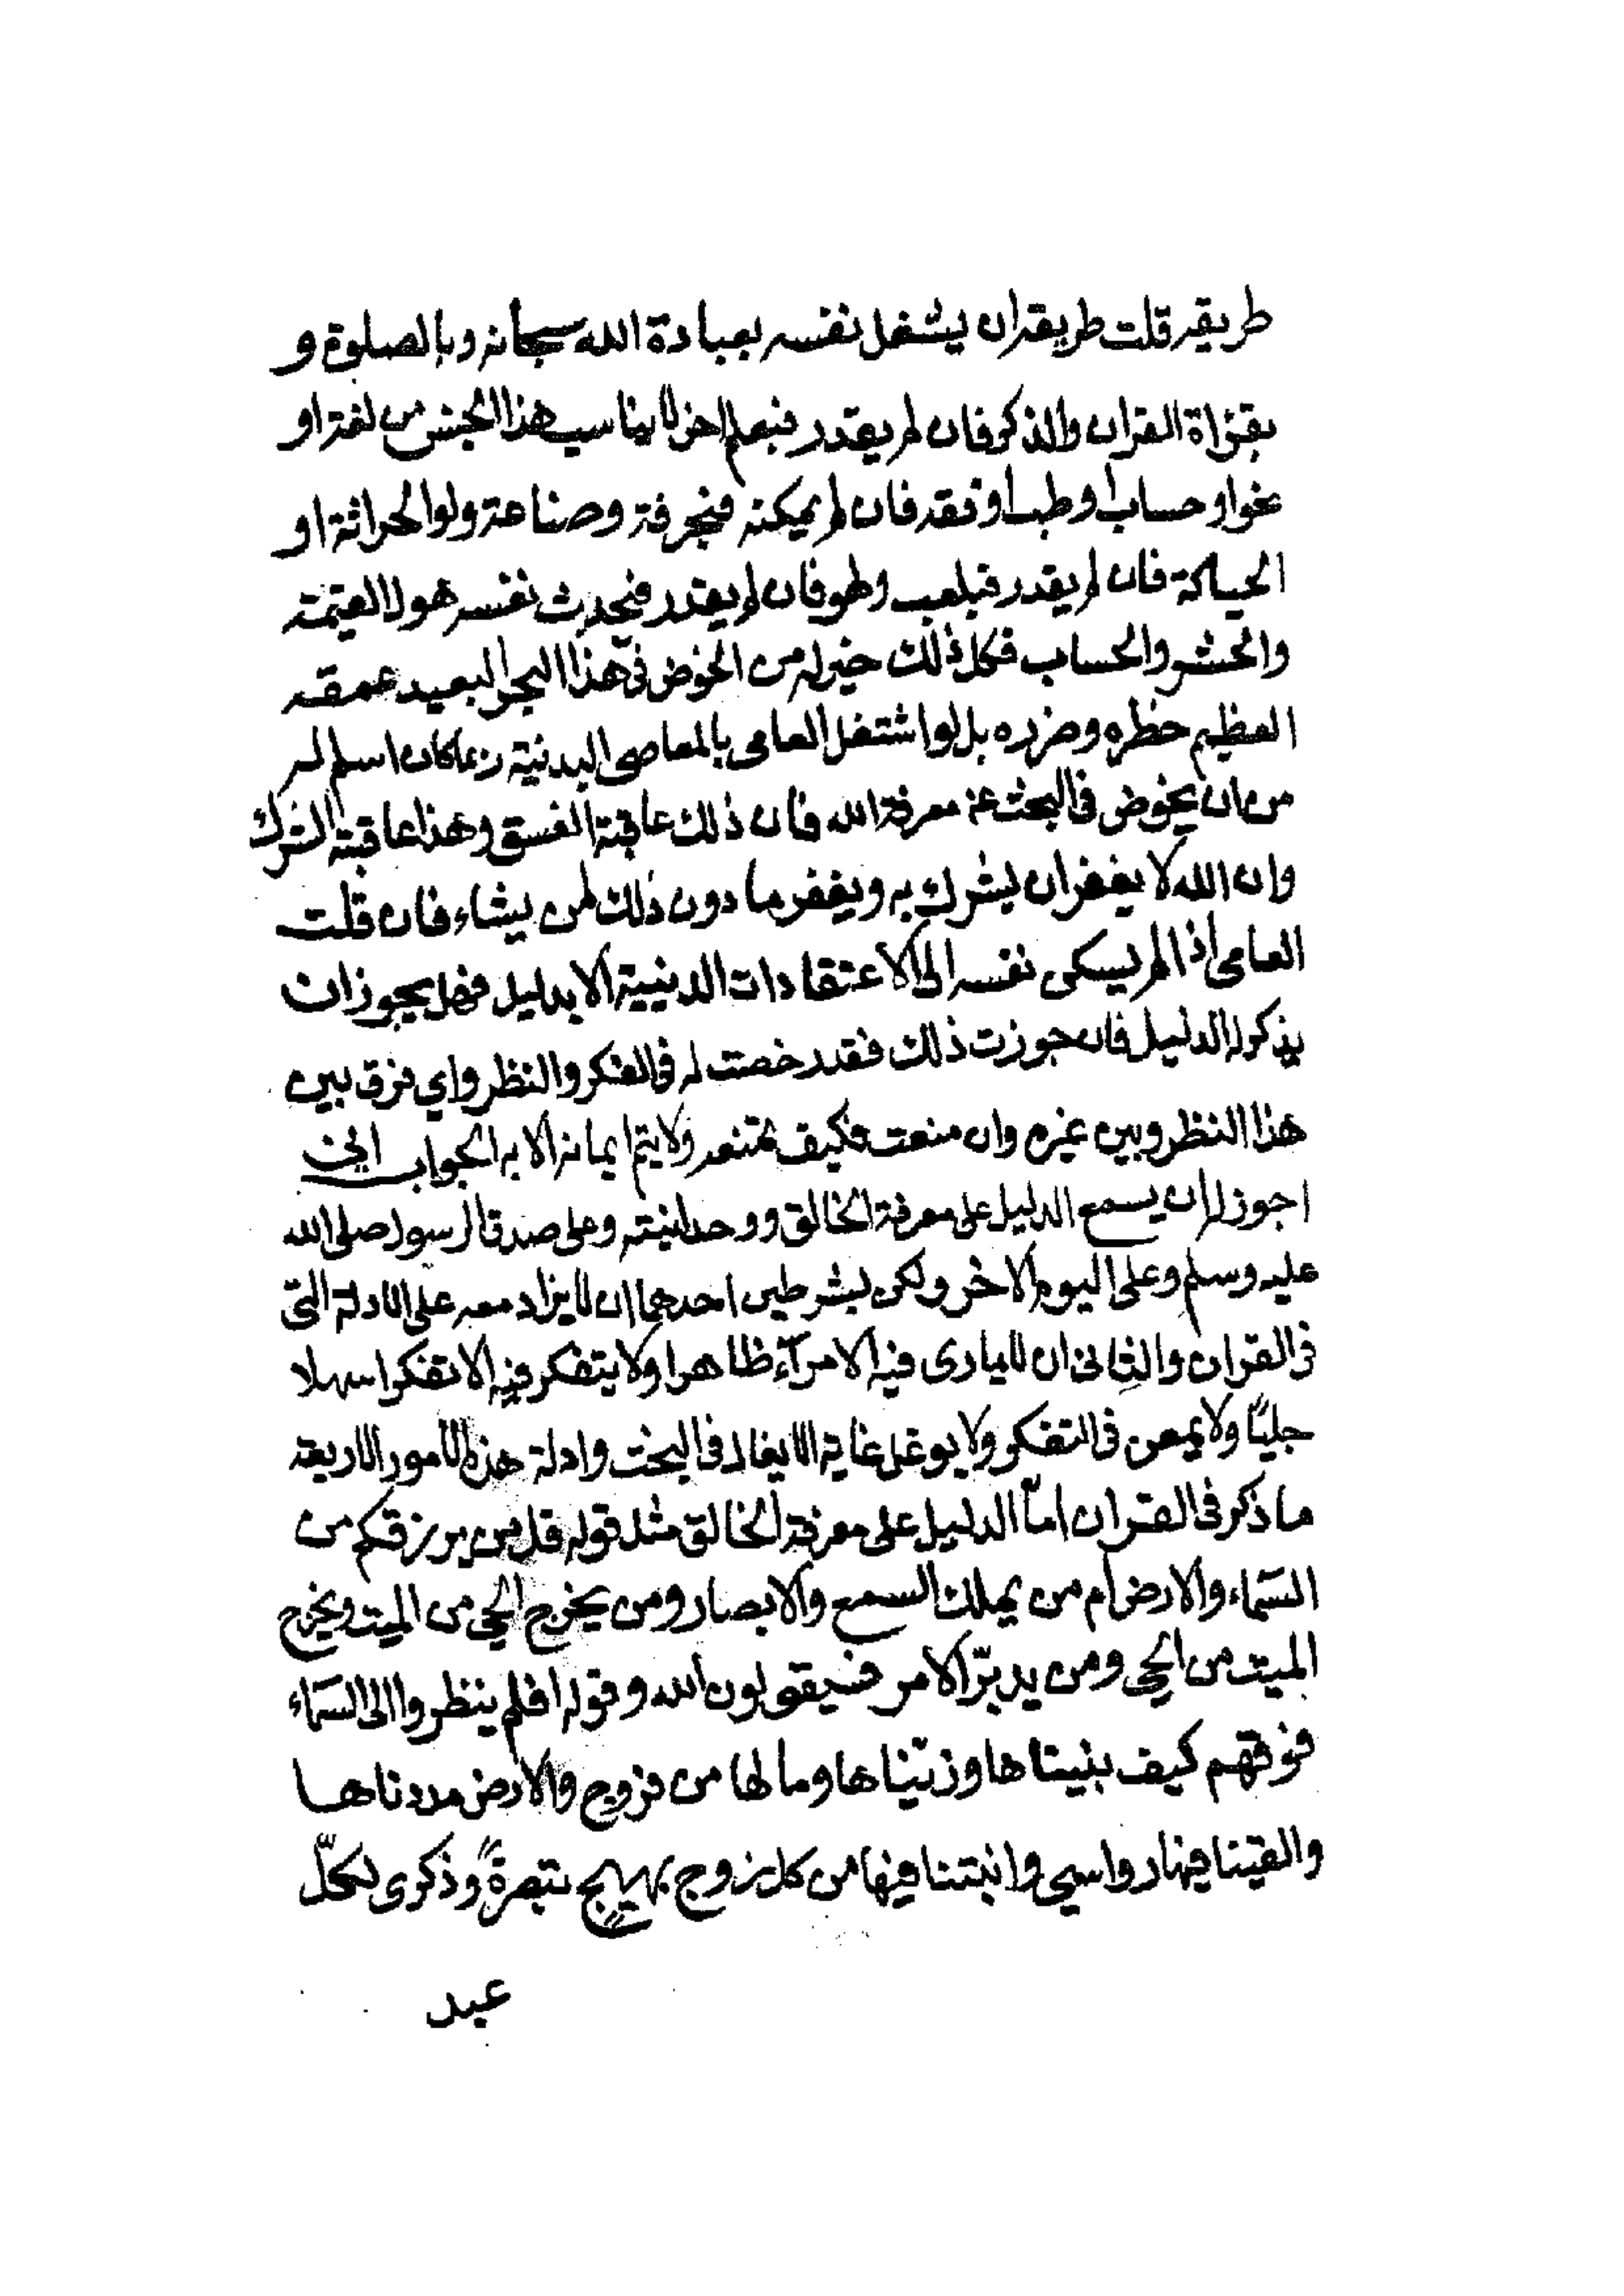 طريقه قلت طريقه ان يشغل نفسه بعبادة الله سبحانه وبالصلوة و
بقرأة القران والذكر فان لم يقدر فبعلم اخر لا يناسب هذا الجنس من لغة او
نحو او حساب او طب او فقه فان لم يمكنه فبحرفة وصناعة ولو الحراثة او
الحياكة فان لم يقدر فبلعب ولهو فان لم يقدر فيحدث نفسه هول القيمة
والحشر والحساب فكل ذلك خير له من الخوض في هذا البحر البعيد عمقه
العظيم خطره وضرره بل لو اشتغل العامي بالمعاصي البدنية ربما كان اسلم له
من ان يخوض في البحث عن معرفة الله فان ذلك عاقبة الفسق وهذا عاقبة الشرك
وان الله لا يغفر ان يشرك به ويغفر ما دون ذلك لمن يشاء فان قلت
العامي اذا لم يسكن نفسه الى الاعتقادات الدينية الا بدليل فهل يجوز ان
يذكر له الدليل فان جوزت ذلك فقد رخصت له في الفكر والنظر واي فرق بين
هذا النظر وبين غيره وان منعت فكيف تمنعه ولا يتم ايمانه الا به الجواب اني
اجوز له ان يسمع الدليل على معرفة الخالق ووحدانيته وعلى صدق الرسول صلى الله
عليه وسلم وعلى اليوم الاخر ولكن بشرطين احدهما ان لا يزاد معه على الادلة التي
في القران والثاني ان لا يماري فيه الا مرآء ظاهرا ولا يتفكر فيه الا تفكرا سهلا
جليًا ولا يمعن في التفكر ولا يوغل غاية الايغال في البحث وادلة هذه الامور الاربعة
ما ذكر في القران امّا الدليل على معرفة الخالق مثل قوله قل من يرزقكم من
السّماء والارض ام من يملك السمع والابصار ومن يخرج الحي من الميت ويخرج
الميت من الحي ومن يدبّر الامر فسيقولون الله وقوله افلم ينظروا الى السّماء
فوقهم كيف بنيناها وزيّنّاها وما لها من فروج والارض مددناها
والقينا فيها رواسي وانبتنا فيها من كل زوج بهيج تبصرةً وذكرى لكلّ
عبد